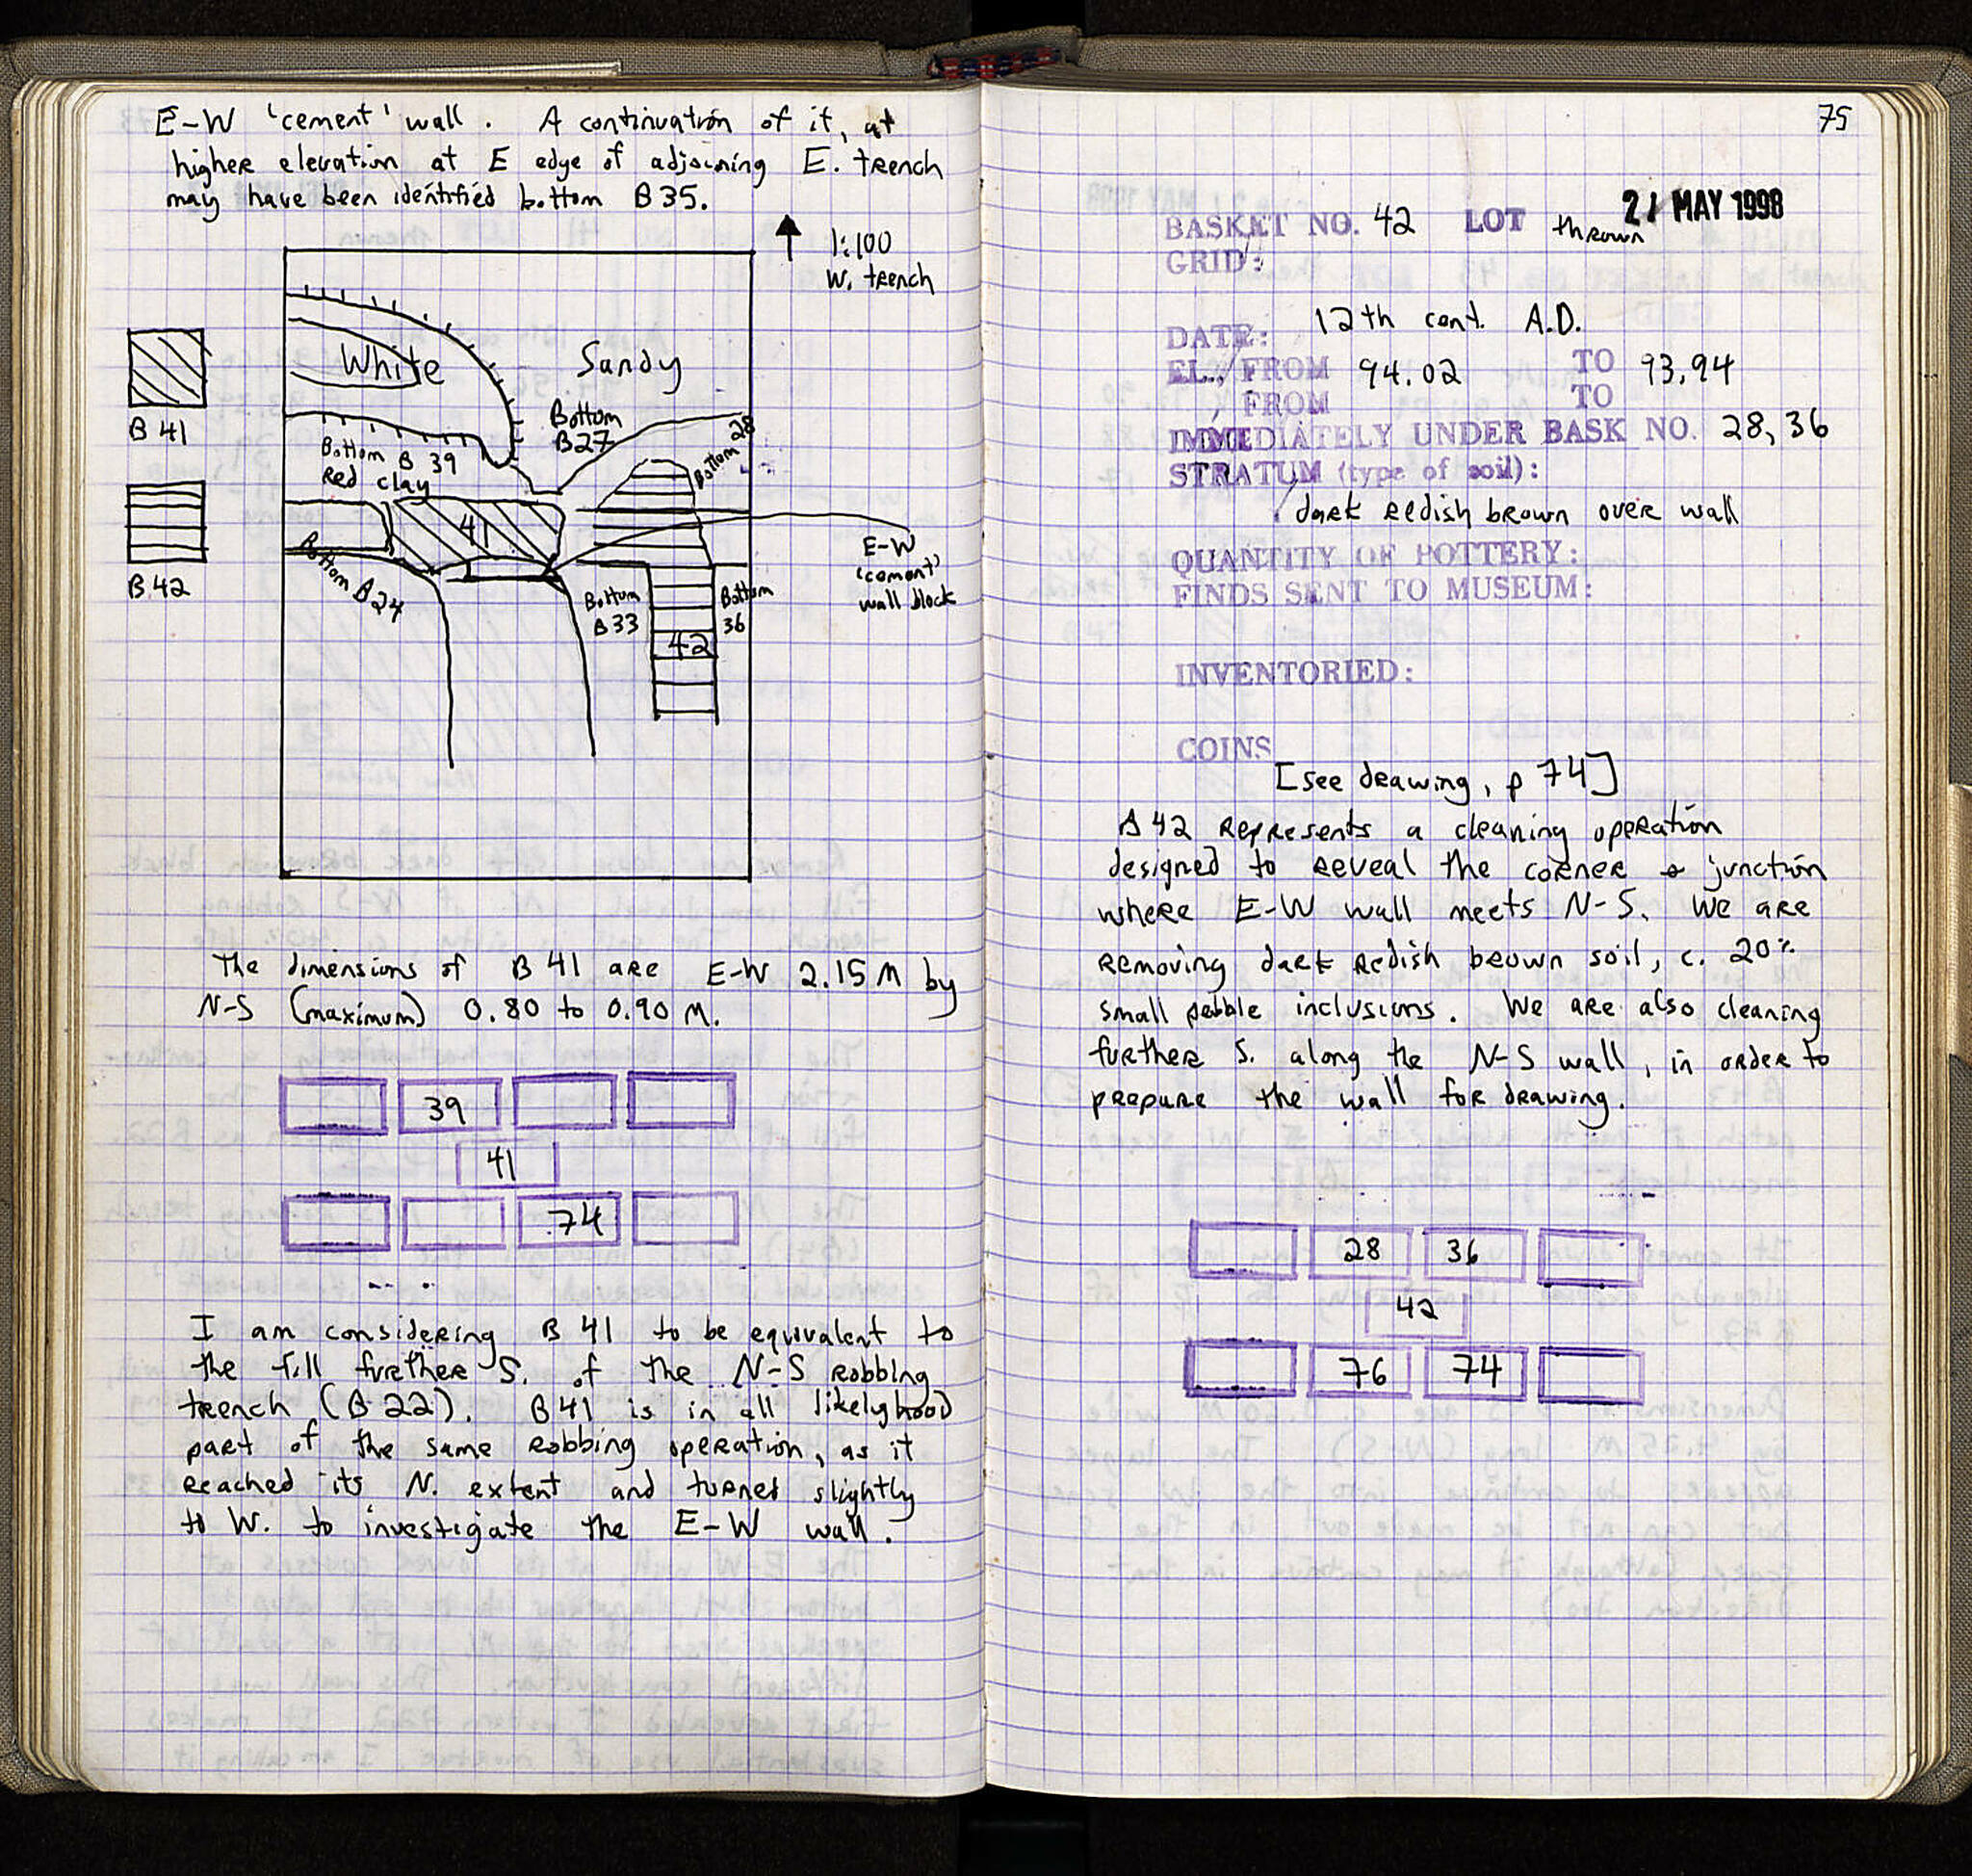 E-W 'cement' wall. A continuation of it, at
higher elevation at E edge of adjoining E. trench
may have been identified bottom B 35.
1:100
W. trench
White
Sandy
B 41
Bottom
B27
Bottom 28
Bottom B 39
Red clay
41
B.42
Bottom B 24
E-W
'cement'
wall block
Bottom
B33
Bottom
36
42
The dimensions of B 41 are E-W 2.15 M by
N-S (maximum) 0.80 to 0.90 M.
39
41
74
I am considering B 41 to be equivalent to
the fill further S. of the N-S robbing
trench (B 22). B 41 is in all likelyhood
part of the same robbing operation, as it
reached its N. extent and turned slightly
to W. to investigate the E-W wall.
75
21 MAY 1998
BASKET NO. 42 LOT thrown
GRID:
DATE: 12th cent. A.D.
EL., FROM 94.02 TO 93.94
FROM TO
IMMEDIATELY UNDER BASK NO. 28, 36
STRATUM (type of soil):
dark redish brown over wall
QUANTITY OF POTTERY:
FINDS SENT TO MUSEUM:
INVENTORIED:
COINS
[see drawing, p 74]
B 42 represents a cleaning operation
designed to reveal the corner & junction
where E-W wall meets N-S. We are
removing dark redish brown soil, c. 20%
small pebble inclusions. We are also cleaning
further S. along the N-S wall, in order to
prepare the wall for drawing.
28 36
42
76 74